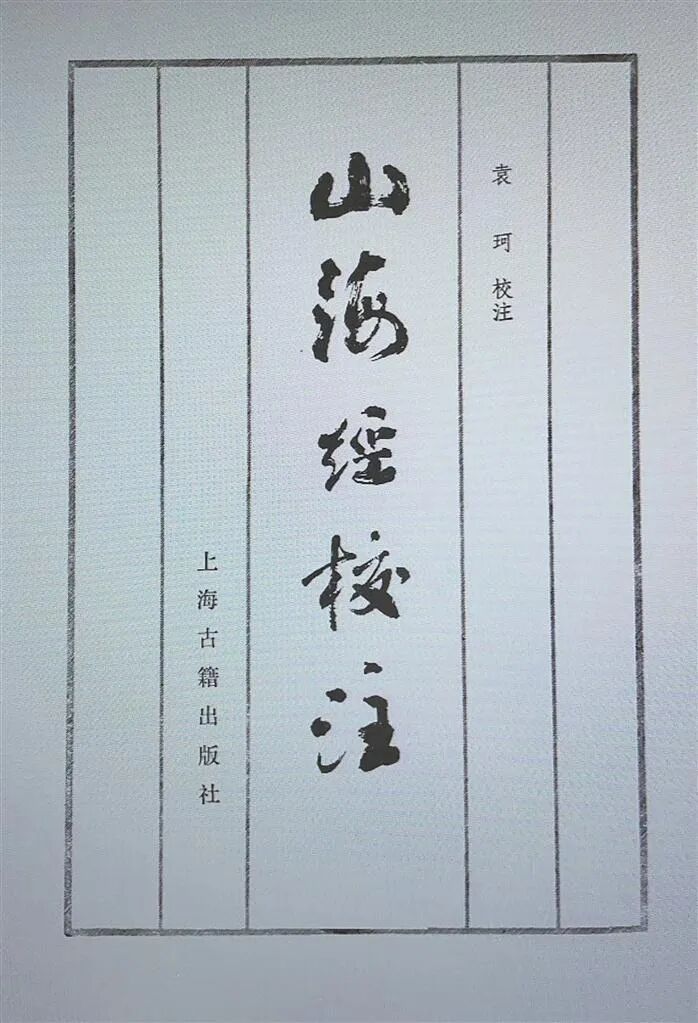 袁珂 校注
山海经校注
上海古籍出版社